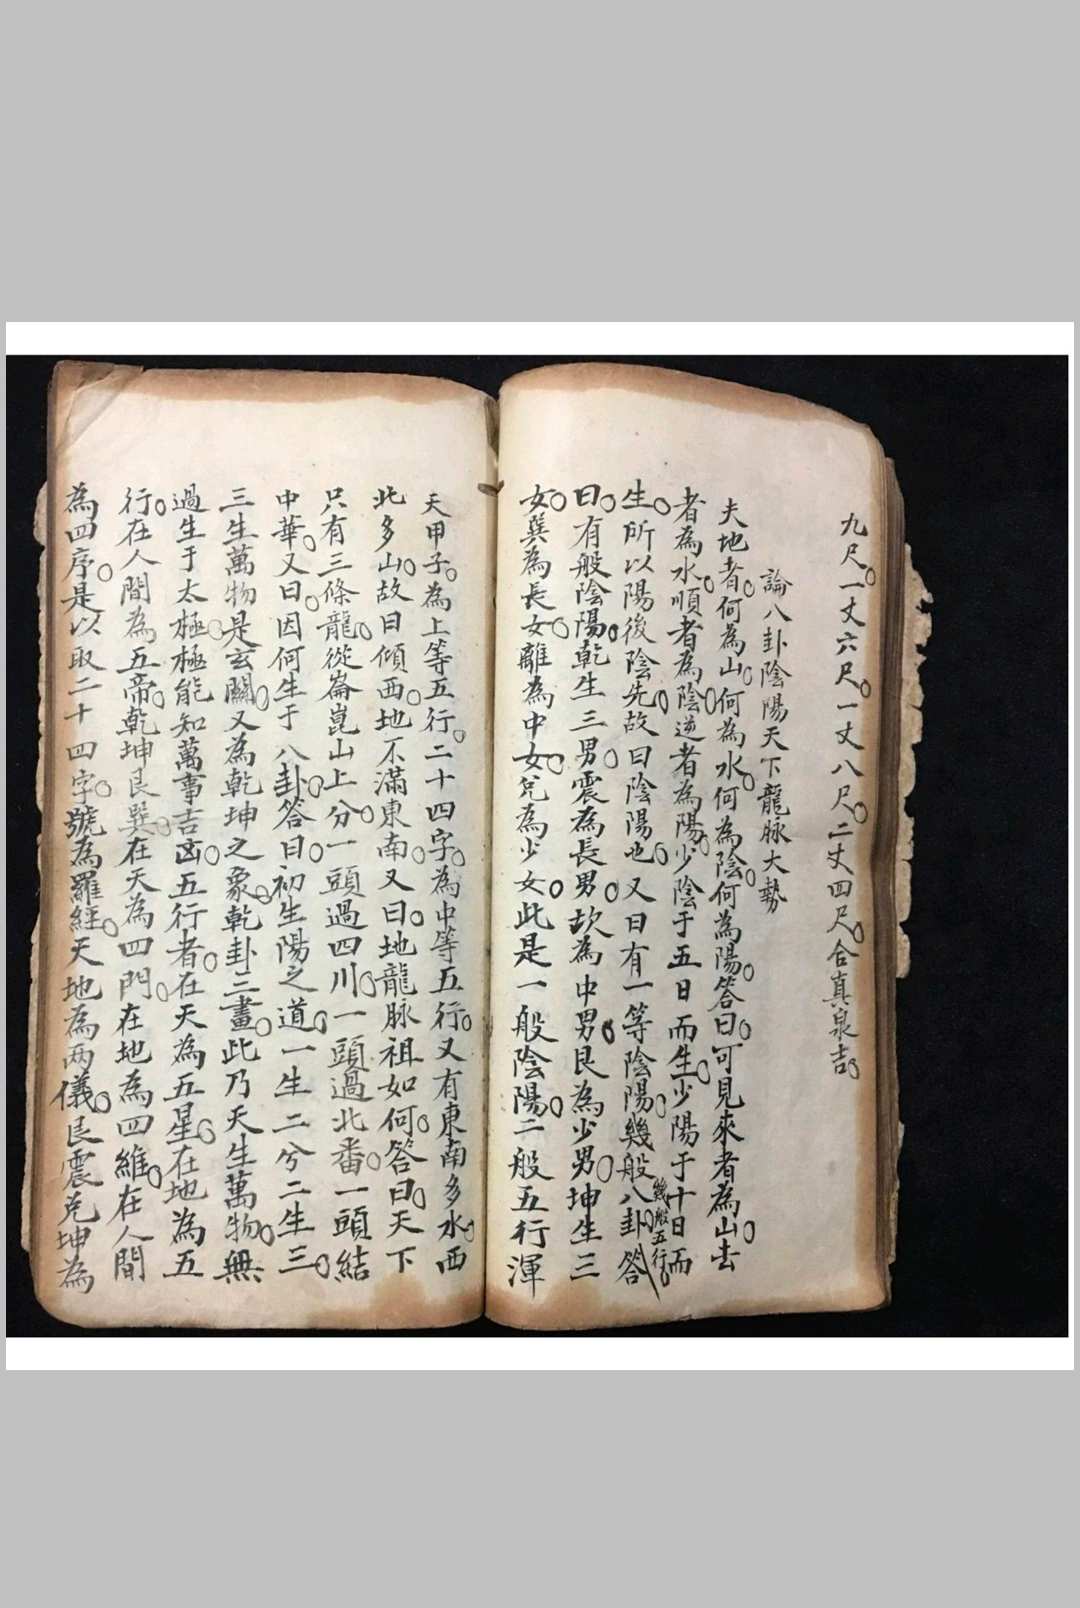 九尺。一丈六尺。一丈八尺。二丈四尺。合真泉吉。
論八卦陰陽天下龍脉大勢
夫地者。何為山。何為水。何為陰。何為陽。答曰。可見來者為山。去
者為水。順者為陰。逆者為陽。少陰于五日而生。少陽于十日而
幾般五行。
生。所以陽後陰先。故曰陰陽也。又曰有一等陰陽。幾般八卦。答
曰。有般陰陽。乾生三男。震為長男。坎為中男。艮為少男。坤生三
女。巽為長女。離為中女。兌為少女。此是一般陰陽。二般五行渾
天甲子。為上等五行。二十四字。為中等五行。又有東南多水。西
北多山。故曰傾西。地不滿東南。又曰。地龍脉祖如何。答曰。天下
只有三條龍。從崙崑山上分。一頭過四川。一頭過北番。一頭結
中華。又曰。因何生于八卦。答曰。初生陽之道。一生二兮二生三。
三生萬物是玄關。又為乾坤之象。乾卦三畫。此乃天生萬物。無
過生于太極。極能知萬事吉凶。五行者。在天為五星。在地為五
行。在人間為五帝。乾坤艮巽。在天為四門。在地為四維。在人間
為四序。是以取二十四字。號為羅經。天地為兩儀。艮震兌坤為